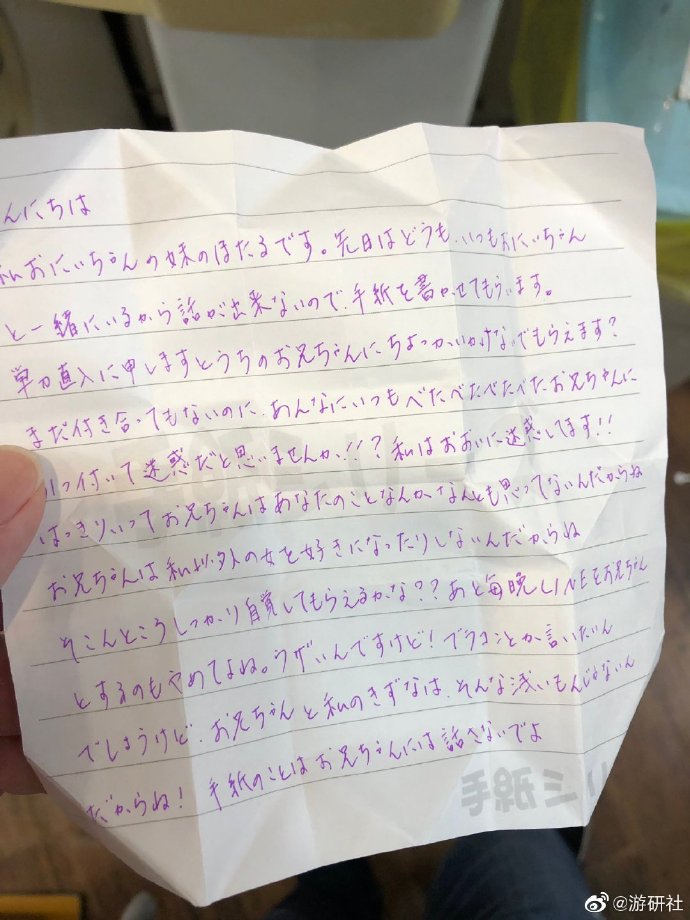 んにちは
私おにいちゃんの妹のほたるです。先日はどうも、いつもおにいちゃん
と一緒にいるから話が出来ないので、手紙を書かせてもらいます。
単刀直入に申しますとうちのお兄ちゃんにちょっかいかけないでもらえます?
まだ付き合ってもないのに、あんなにいつもべたべたべたべたお兄ちゃんに
くっ付いて迷惑だと思いませんか!!?私はおおいに迷惑してます!!
はっきりいってお兄ちゃんはあなたのことなんかなんとも思ってないんだからね
お兄ちゃんは私以外の女を好きになったりしないんだからね
そこんところしっかり自覚してもらえるかな??あと毎晩LINEをお兄ちゃん
とするのもやめてよね。うざいんですけど!ブラコンとか言いたいん
でしょうけど、お兄ちゃんと私のきずなは、そんな浅いもんじゃないん
だからね!手紙のことはお兄ちゃんには話さないでよ
手紙ミリ
@游研社